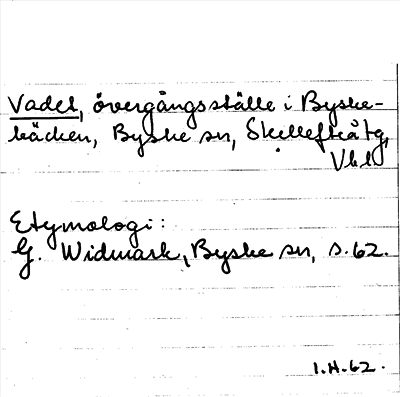 Vadet, övergångsställe i Byske-
bäcken, Byske sn, Skellefteå tg,
Vbl
Etymologi:
G. Widmark, Byske sn, s. 62.
1.H.62.